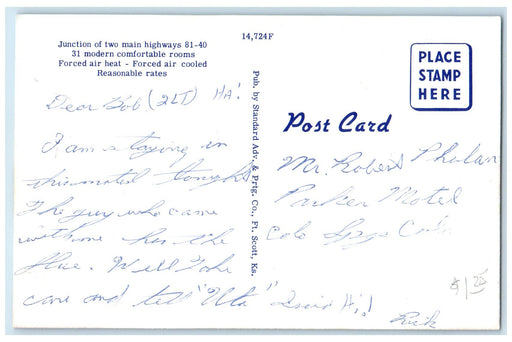 14,724F
Junction of two main highways 81-40
31 modern comfortable rooms
Forced air heat - Forced air cooled
Reasonable rates
PLACE
STAMP
HERE
Post Card
Pub. by Standard Adv. & Prtg. Co., Ft. Scott, Ks.
Dear Bob (2LT) HA!
I am staying in
this motel tonight
The guy who came
with me has the
flue. Well Take
care and tell "Uta" Hi!
Rick
Mr. Robert Phelan
Parker Motel
Colo Spgs Colo.